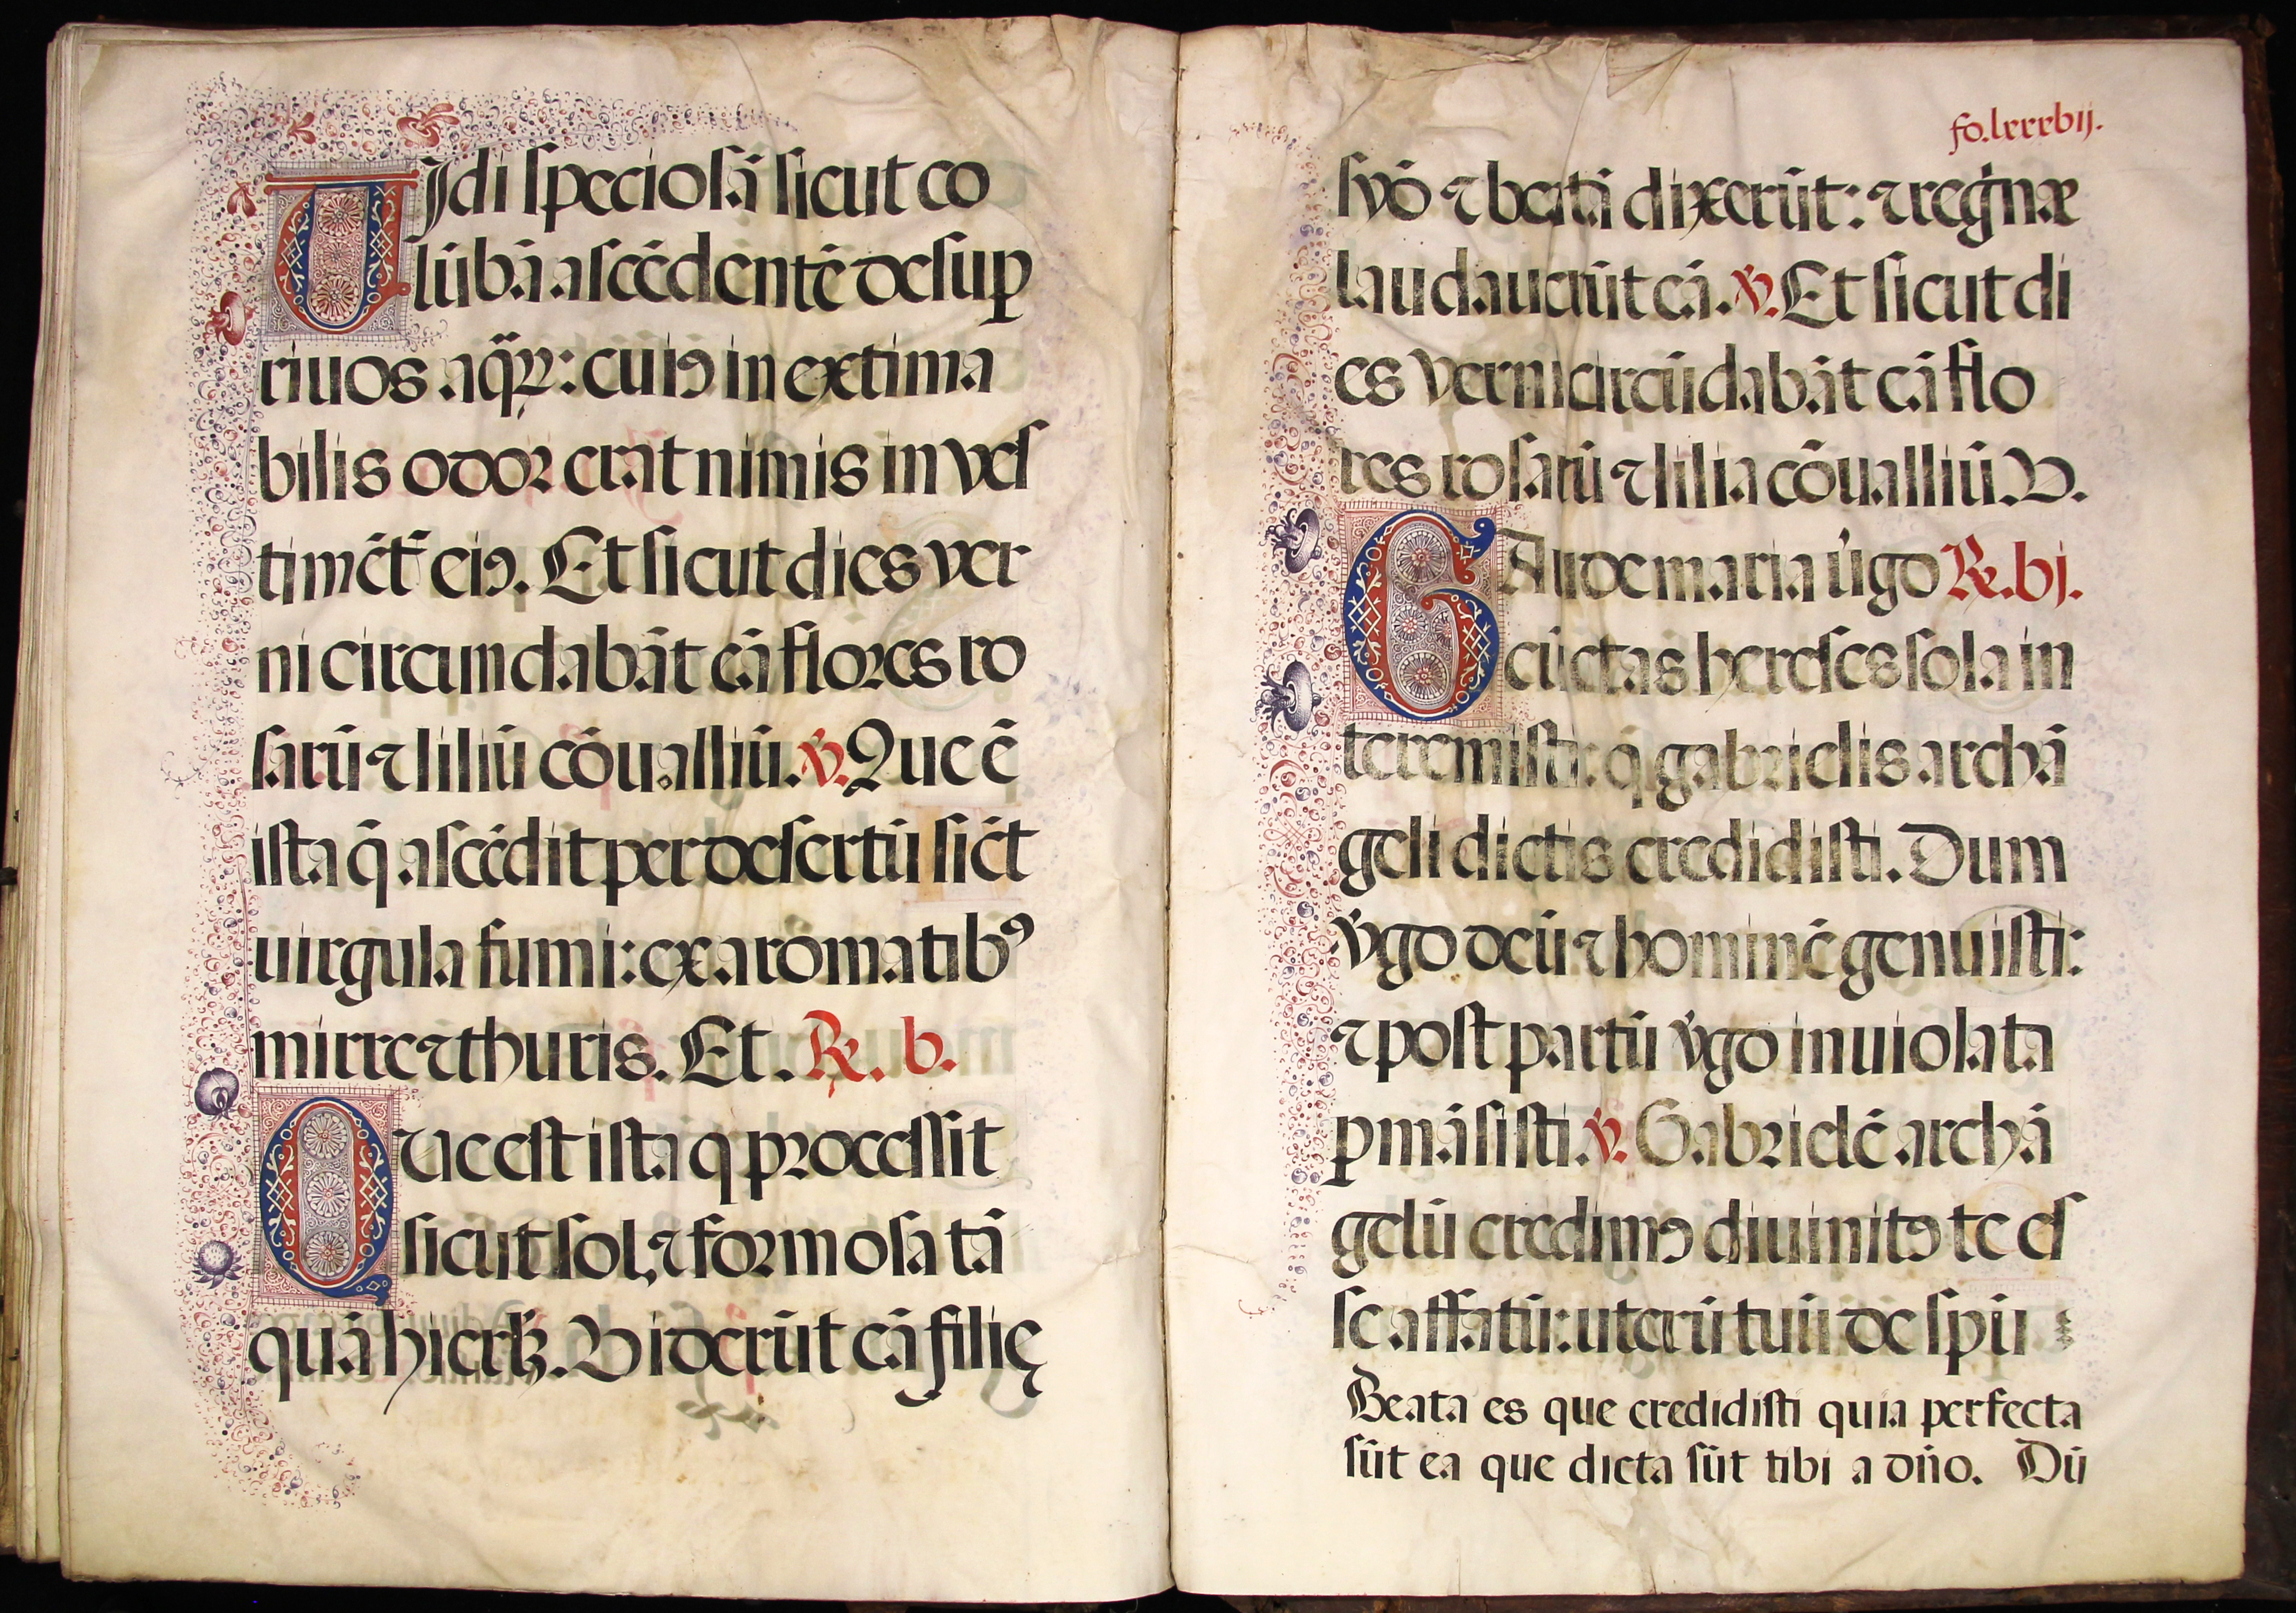 VJdi speciosā sicut co
lūbā ascēdentē desup
riuos aq̄ꝝ: cuiꝰ in extima
bilis odor erat nimis in ves
timēt̄ eiꝰ. Et sicut dies ver
ni circundabāt eā flores ro
sarū ⁊ liliū cōualliū. ℣. Que ē
ista q̄ ascēdit per desertū sic̄t
uirgula fumi: ex aromatibꝰ
mirre ⁊ thuris. Et. ℟. b.
Que est ista q processit
sicut sol, ⁊ formosa tā
quā hierłꝫ. Viderūt eā filię
fo. lxxxbij.
syō ⁊ beatā dixerūt: ⁊ regīnæ
laudauerūt eā. ℣. Et sicut di
es verni circūdabāt eā flo
res rosarū ⁊ lilia cōualliū. V.
GAude maria v̄go ℟. bj.
cūctas hereses sola in
teremisti: q̄ gabrielis archā
geli dictis credidisti. Dum
v̄go deū ⁊ hominē genuisti:
⁊ post partū v̄go inuiolata
ꝑmāsisti. ℣. Gabrielē archā
gelū credimꝰ diuinitꝰ te es
se affatū: uterū tuū de spū
Beata es que credidisti quia perfecta
sūt ea que dicta sūt tibi a dn̄o. Dū